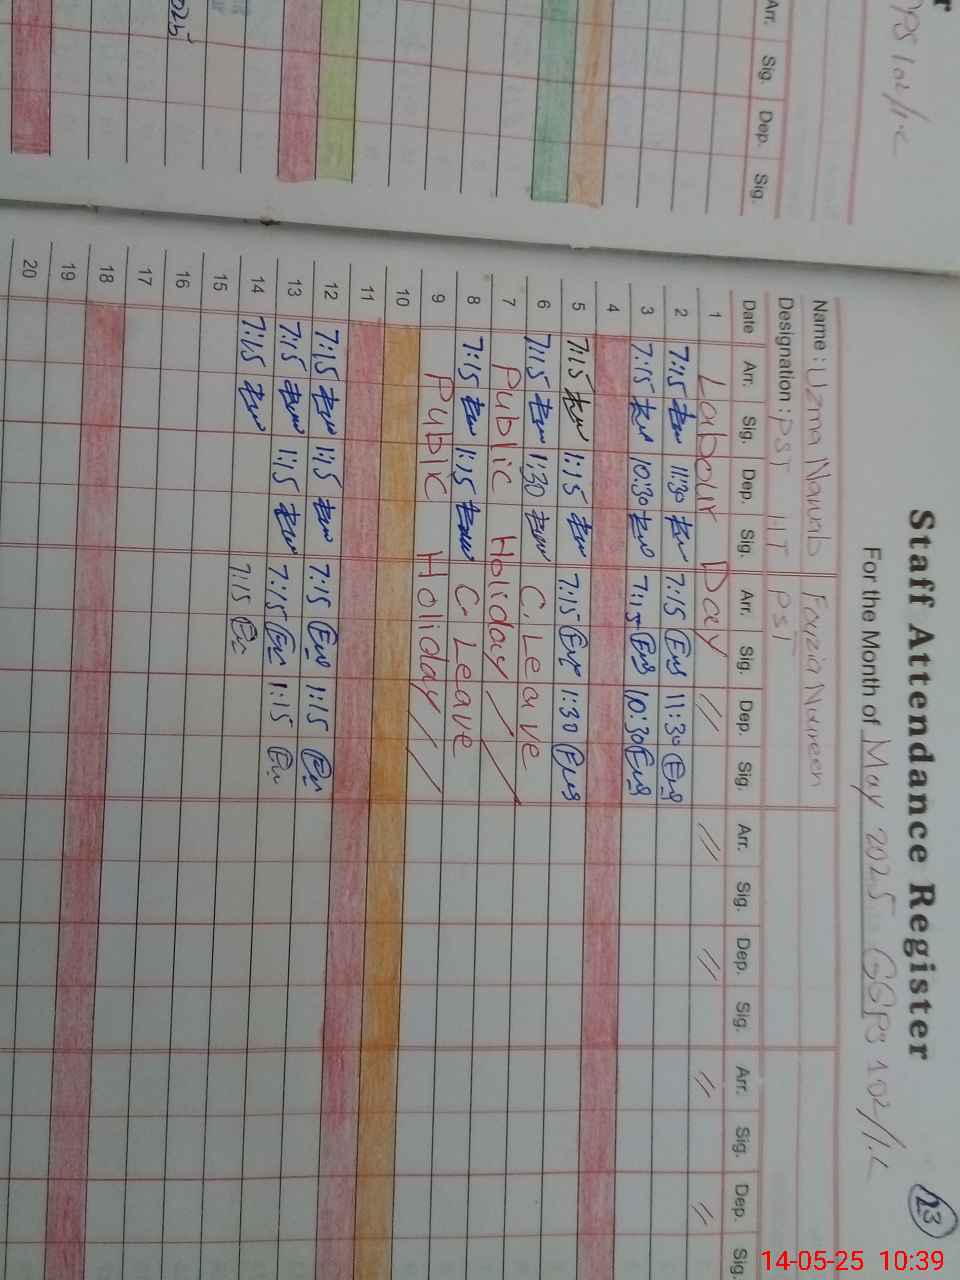 Staff Attendance Register
23
For the Month of May 2025 GGPS 102/1.L
Name : Uzma Nawab Fouzia Noreen
Designation : PST HT PST
Date Arr. Sig. Dep. Sig. Arr. Sig. Dep. Sig. Arr. Sig. Dep. Sig. Arr. Sig. Dep. Sig.
1 Labour Day // // // // //
2 7:15 11:30 7:15 11:30
3 7:15 10:30 7:15 10:30
4
5 7:15 1:15 7:15 1:30
6 7:15 1:30 C. Leave
7 Public Holiday //
8 7:15 1:15 C. Leave
9 Public Holiday //
10
11
12 7:15 1:15 7:15 1:15
13 7:15 1:15 7:15 1:15
14 7:15 7:15
15
16
17
18
19
20
Arr. Sig. Dep. Sig.
14-05-25 10:39